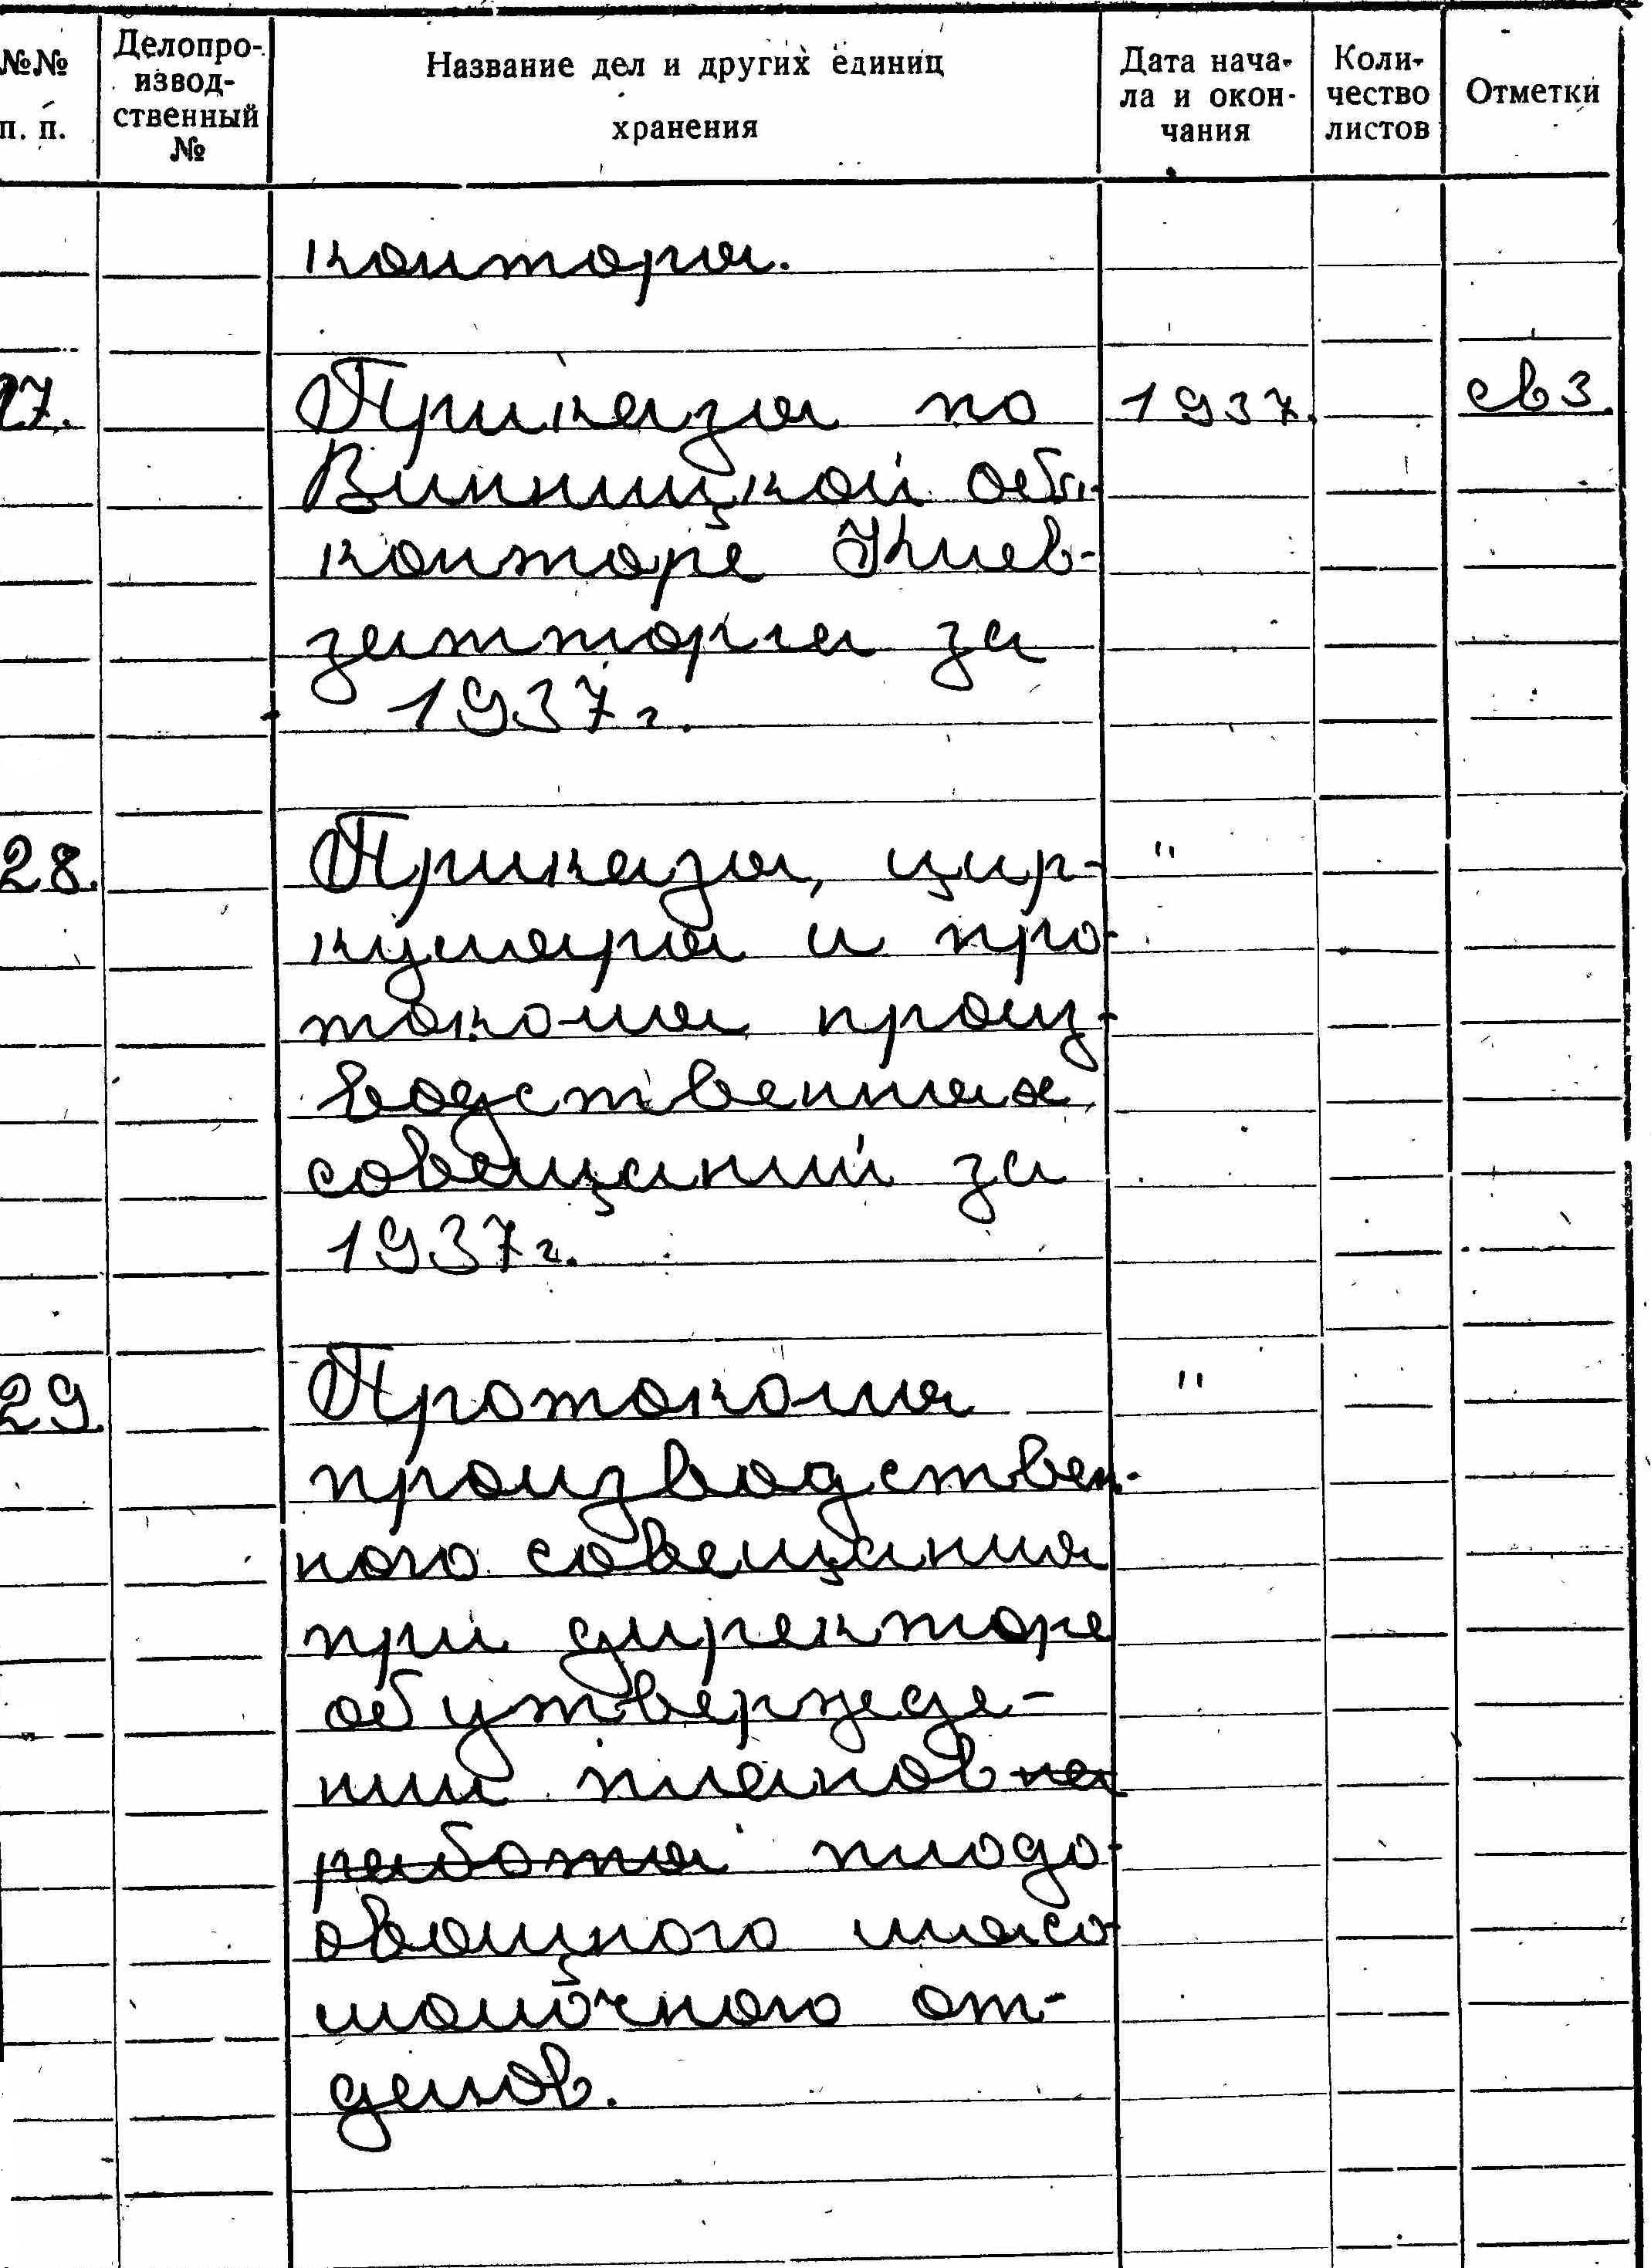 №№ п. п. Делопро-извод-ственный № Название дел и других единиц хранения Дата нача-ла и окон-чания Коли-чество листов Отметки
конторы.
27. Приказы по 1937. св 3.
Винницкой обл.
конторе Киев-
затторга за
1937 г.
28. Приказы, цир- "
куляры и про-
токолы произ-
водственных
совещаний за
1937 г.
29. Протоколы "
производствен-
ного совещания
при директоре
об утвержде-
нии планов на
работы плодо-
овощного мясо
молочного от-
делов.